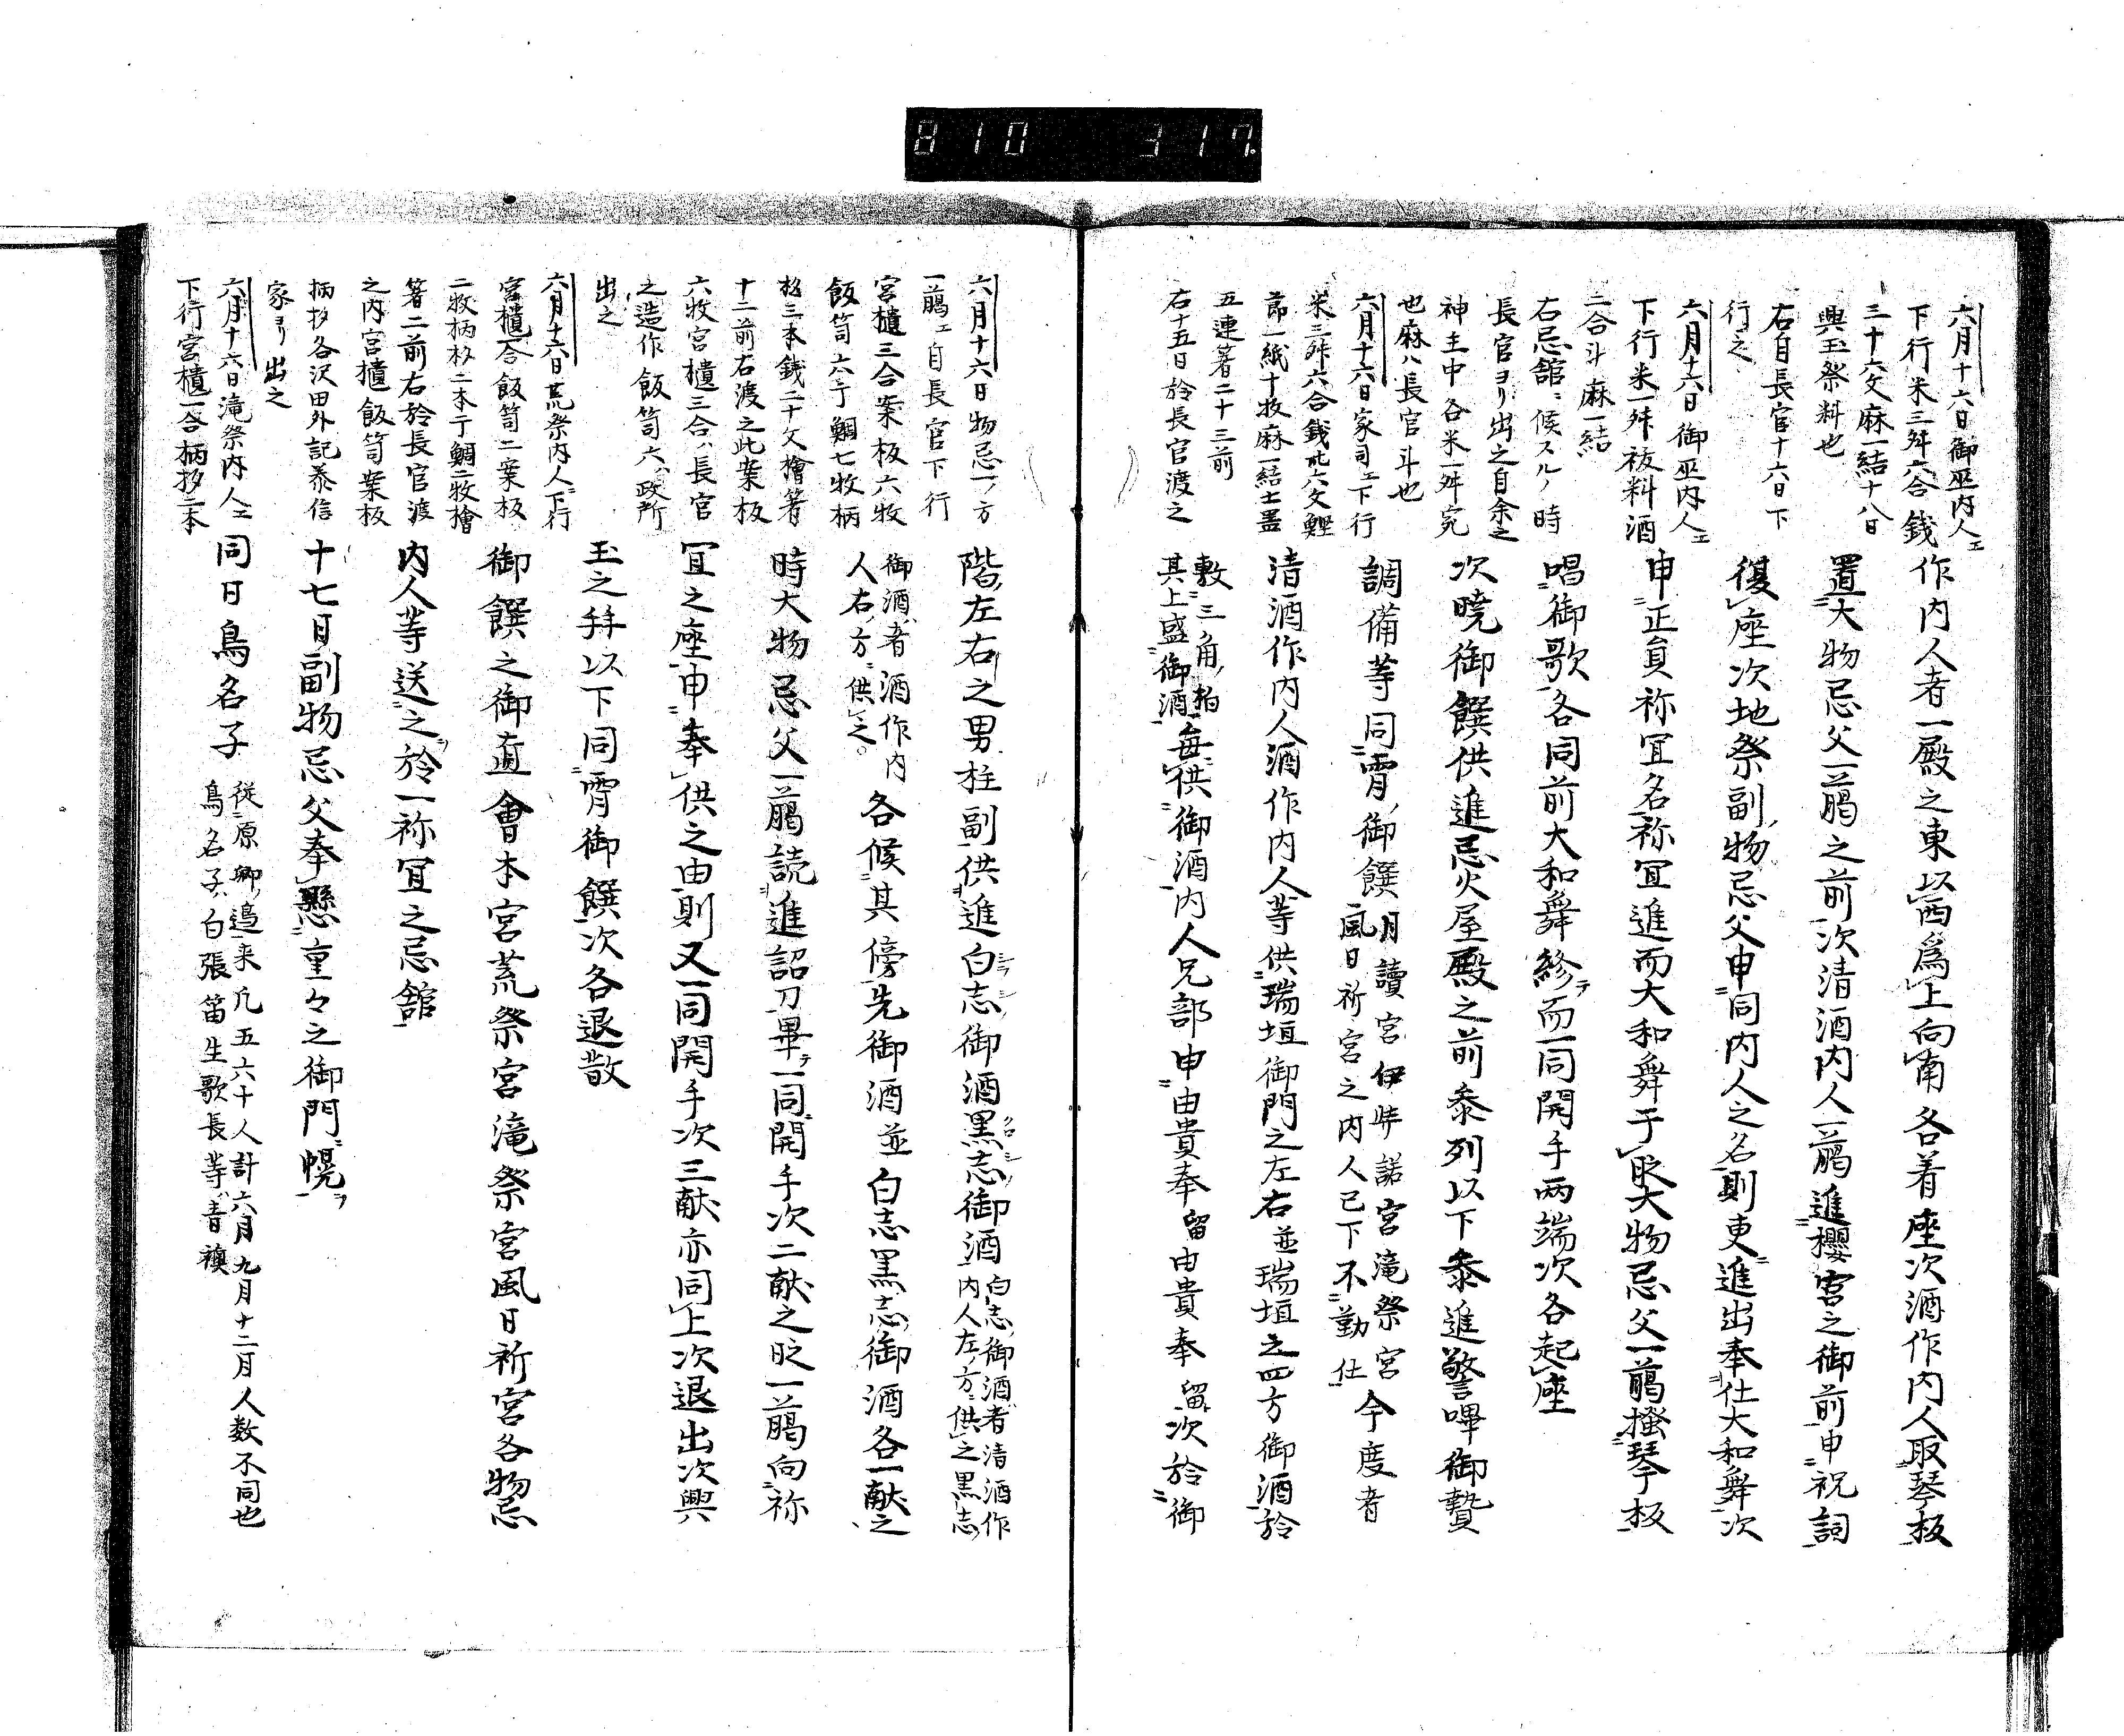 810 317
六月十六日御巫内人ニ
下行米三舛六合銭
三十六文麻一結十八日
興玉祭料也
右自長官十六日下
行之
六月十六日御巫内人ニ
下行米一舛祓料酒
二合斗麻一結
右忌舘ニ候スル時
長官ヨリ出之自余之
神主中各米一舛宛
也麻ハ長官斗也
六月十六日家司ニ下行
米三舛六合銭卅六文鰹
節一紙十牧麻一結土器
五連箸二十三前
右十五日於長官渡之
作内人者一殿之東以西爲上向南各着座次酒作内人取琴板
置大物忌父一﨟之前次清酒内人一﨟進櫻宮之御前申祝詞
復座次地祭副物忌父申同内人之名則更進出奉仕大和舞次
申正員祢冝名祢冝進而大和舞于時大物忌父一﨟搔琴板
唱御歌各同前大和舞終テ而一同開手両端次各起座
次曉御饌供進忌火屋殿之前参列以下参進警蹕御贄
調備等同宵御饌月讀宮伊弉諾宮滝祭宮
風日祈宮之内人已下不勤仕今度者
清酒作内人酒作内人等供瑞垣御門之左右並瑞垣之四方御酒於
敷三角柏
其上盛御酒毎供御酒内人兄部申由貴奉留由貴奉留次於御
六月十六日物忌ノ方
一﨟ニ自長官下行
宮櫃三合案板六牧
飯笥六ヶ鯛七牧柄
杓三本銭二十文檜箸
十二前右渡之此案板
六牧宮櫃三合ハ長官
之造作飯笥六ハ政所
出之
六月十六日荒祭内人ニ下行
宮櫃一合飯笥二案板
二牧柄杓二本干鯛二牧檜
箸二前右於長官渡
之内宮櫃飯笥案板
柄杓各沢田外記泰信
家ヨリ出之
六月十六日滝祭内人ニ
下行宮櫃一合柄杓二本
階左右之男柱副供進白志御酒黒志御酒白志御酒者清酒作
内人左ノ方ニ供之黒志
御酒者酒作内
人右ノ方ニ供之各候其傍先御酒並白志黒志御酒各一献之
時大物忌父一﨟読進詔刀畢テ一同開手次二献之時一﨟向祢
冝之座申奉供之由則又一同開手次三献亦同上次退出次興
玉之拜以下同宵御饌次各退散
御饌之御直會本宮荒祭宮滝祭宮風日祈宮各物忌
内人等送之於一祢冝之忌舘
十七日副物忌父奉懸重々之御門ニ幌ヲ
同日鳥名子従原郷邉来凡五六十人計六月九月十二月人数不同也
鳥名子ハ白張笛生歌長等ハ青襖